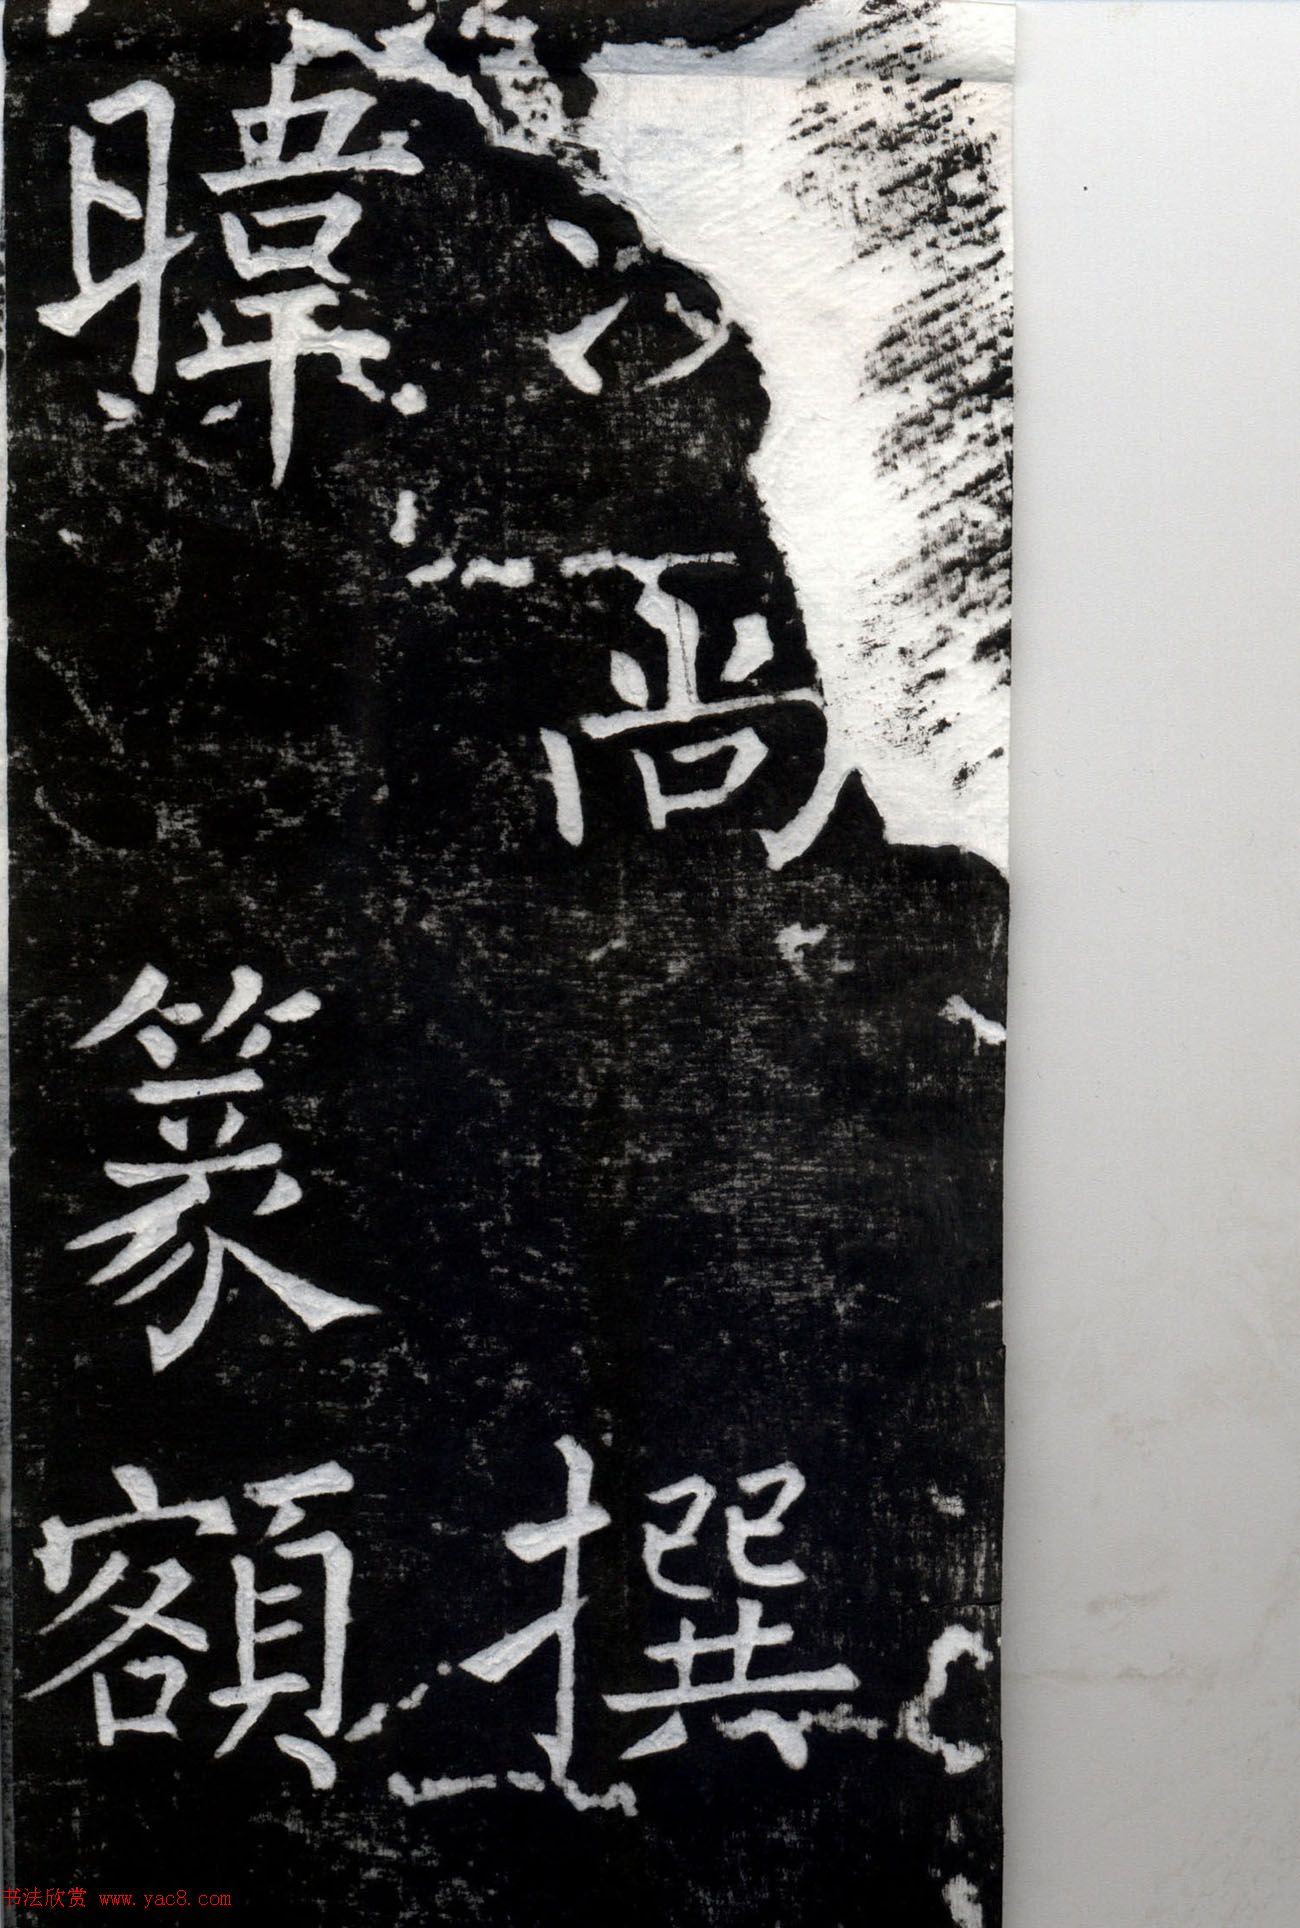 商撰
暐篆額
书法欣赏 www.yac8.com